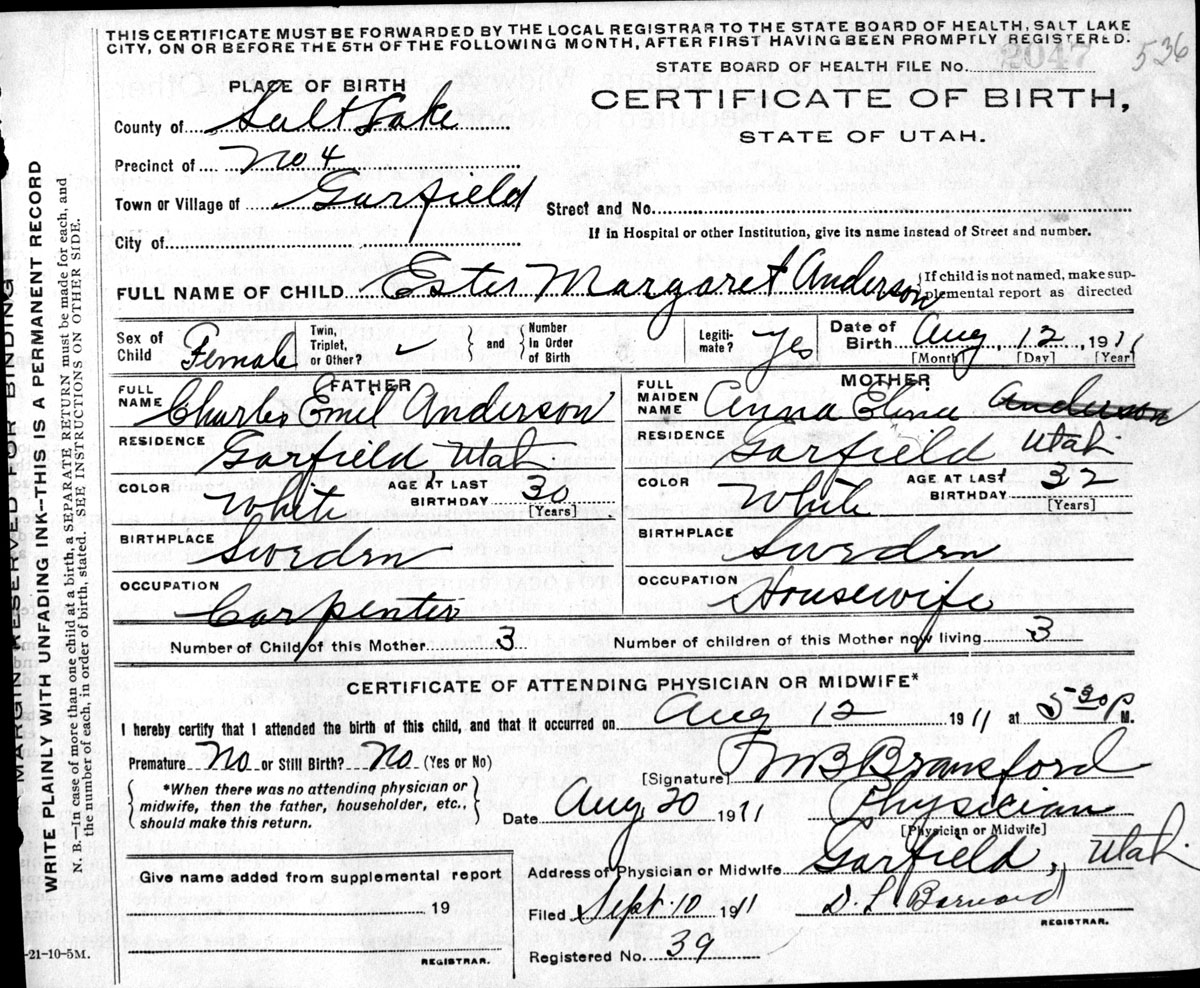 THIS CERTIFICATE MUST BE FORWARDED BY THE LOCAL REGISTRAR TO THE STATE BOARD OF HEALTH, SALT LAKE
CITY, ON OR BEFORE THE 5TH OF THE FOLLOWING MONTH, AFTER FIRST HAVING BEEN PROMPTLY REGISTERED.
STATE BOARD OF HEALTH FILE No. 2047 536
PLACE OF BIRTH
CERTIFICATE OF BIRTH,
STATE OF UTAH.
County of Salt Lake
Precinct of No 4
Town or Village of Garfield
Street and No.
City of
If in Hospital or other Institution, give its name instead of Street and number.
FULL NAME OF CHILD Ester Margaret Anderson
{If child is not named, make sup-
plemental report as directed
Sex of Child Female
Twin, Triplet, or Other? ✓ } and { Number In Order of Birth
Legiti-mate? yes
Date of Birth Aug, 12, 1911
[Month] [Day] [Year]
FATHER
FULL NAME Charles Emil Anderson
RESIDENCE Garfield, Utah
COLOR White AGE AT LAST BIRTHDAY 30
[Years]
BIRTHPLACE Sweden
OCCUPATION Carpenter
MOTHER
FULL MAIDEN NAME Anna Elina Anderson
RESIDENCE Garfield Utah.
COLOR White AGE AT LAST BIRTHDAY 32
[Years]
BIRTHPLACE Sweden
OCCUPATION Housewife
Number of Child of this Mother 3 Number of children of this Mother now living 3
CERTIFICATE OF ATTENDING PHYSICIAN OR MIDWIFE*
I hereby certify that I attended the birth of this child, and that it occurred on Aug 12 1911 at 5 30 P M.
Premature No or Still Birth? No (Yes or No)
[Signature] B Bransford
{ *When there was no attending physician or
midwife, then the father, householder, etc.,
should make this return. }
Date Aug 20 1911 Physician
[Physician or Midwife]
Address of Physician or Midwife Garfield, Utah.
Give name added from supplemental report
19
REGISTRAR.
Filed Sept. 10 1911 D. L Barnard
REGISTRAR.
Registered No. 39
-21-10-5M.
MARGIN RESERVED FOR BINDING
WRITE PLAINLY WITH UNFADING INK—THIS IS A PERMANENT RECORD
N. B.—In case of more than one child at a birth, a SEPARATE RETURN must be made for each, and
the number of each, in order of birth, stated. SEE INSTRUCTIONS ON OTHER SIDE.